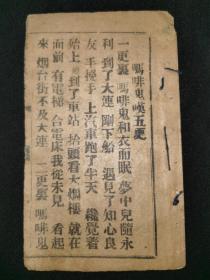 嗎啡鬼嘆五更
一更裏 嗎啡鬼和衣而眠 夢中兒隨永
利 到了大連 剛下船 遇見了知心良
友 手擾手 上汽車跑了半天 纔覺着
始上 到了車站 抬頭看大烟樓 就在
面前 有電梯 合電床我從未見 看起
來 烟台街不及大連 二更裏 嗎啡鬼